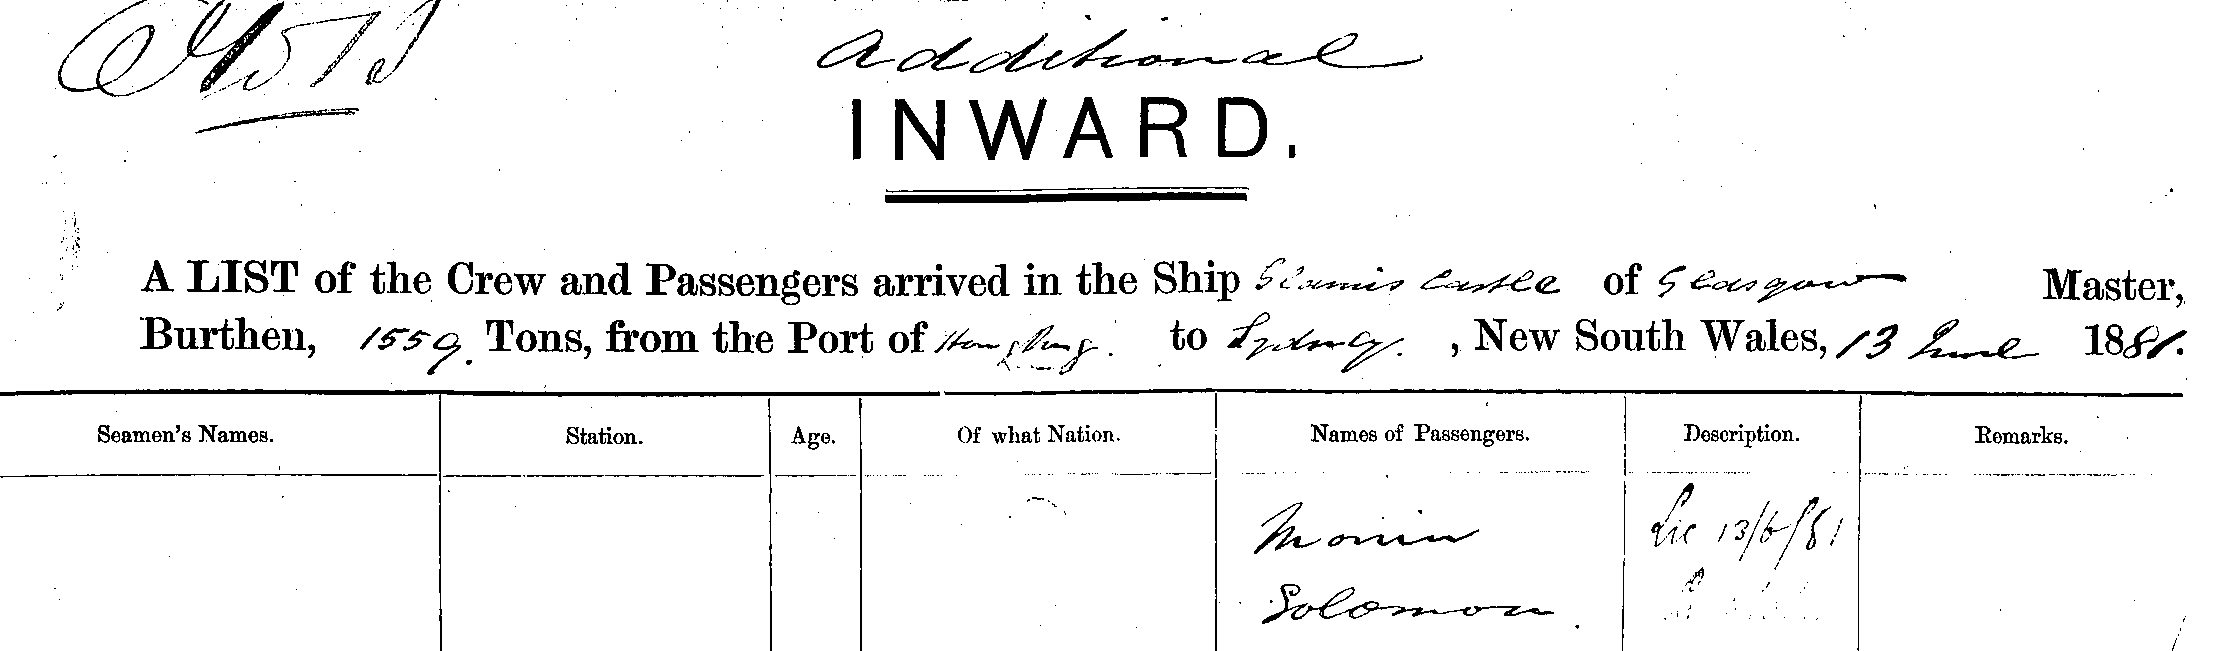 Additional
INWARD.
A LIST of the Crew and Passengers arrived in the Ship Glamis Castle of Glasgow Master,
Burthen, 1559 Tons, from the Port of Hong Kong. to Sydney. , New South Wales, 13 June 1881.
Seamen's Names. Station. Age. Of what Nation. Names of Passengers. Description. Remarks.
Monin 13/6/81
Solomon